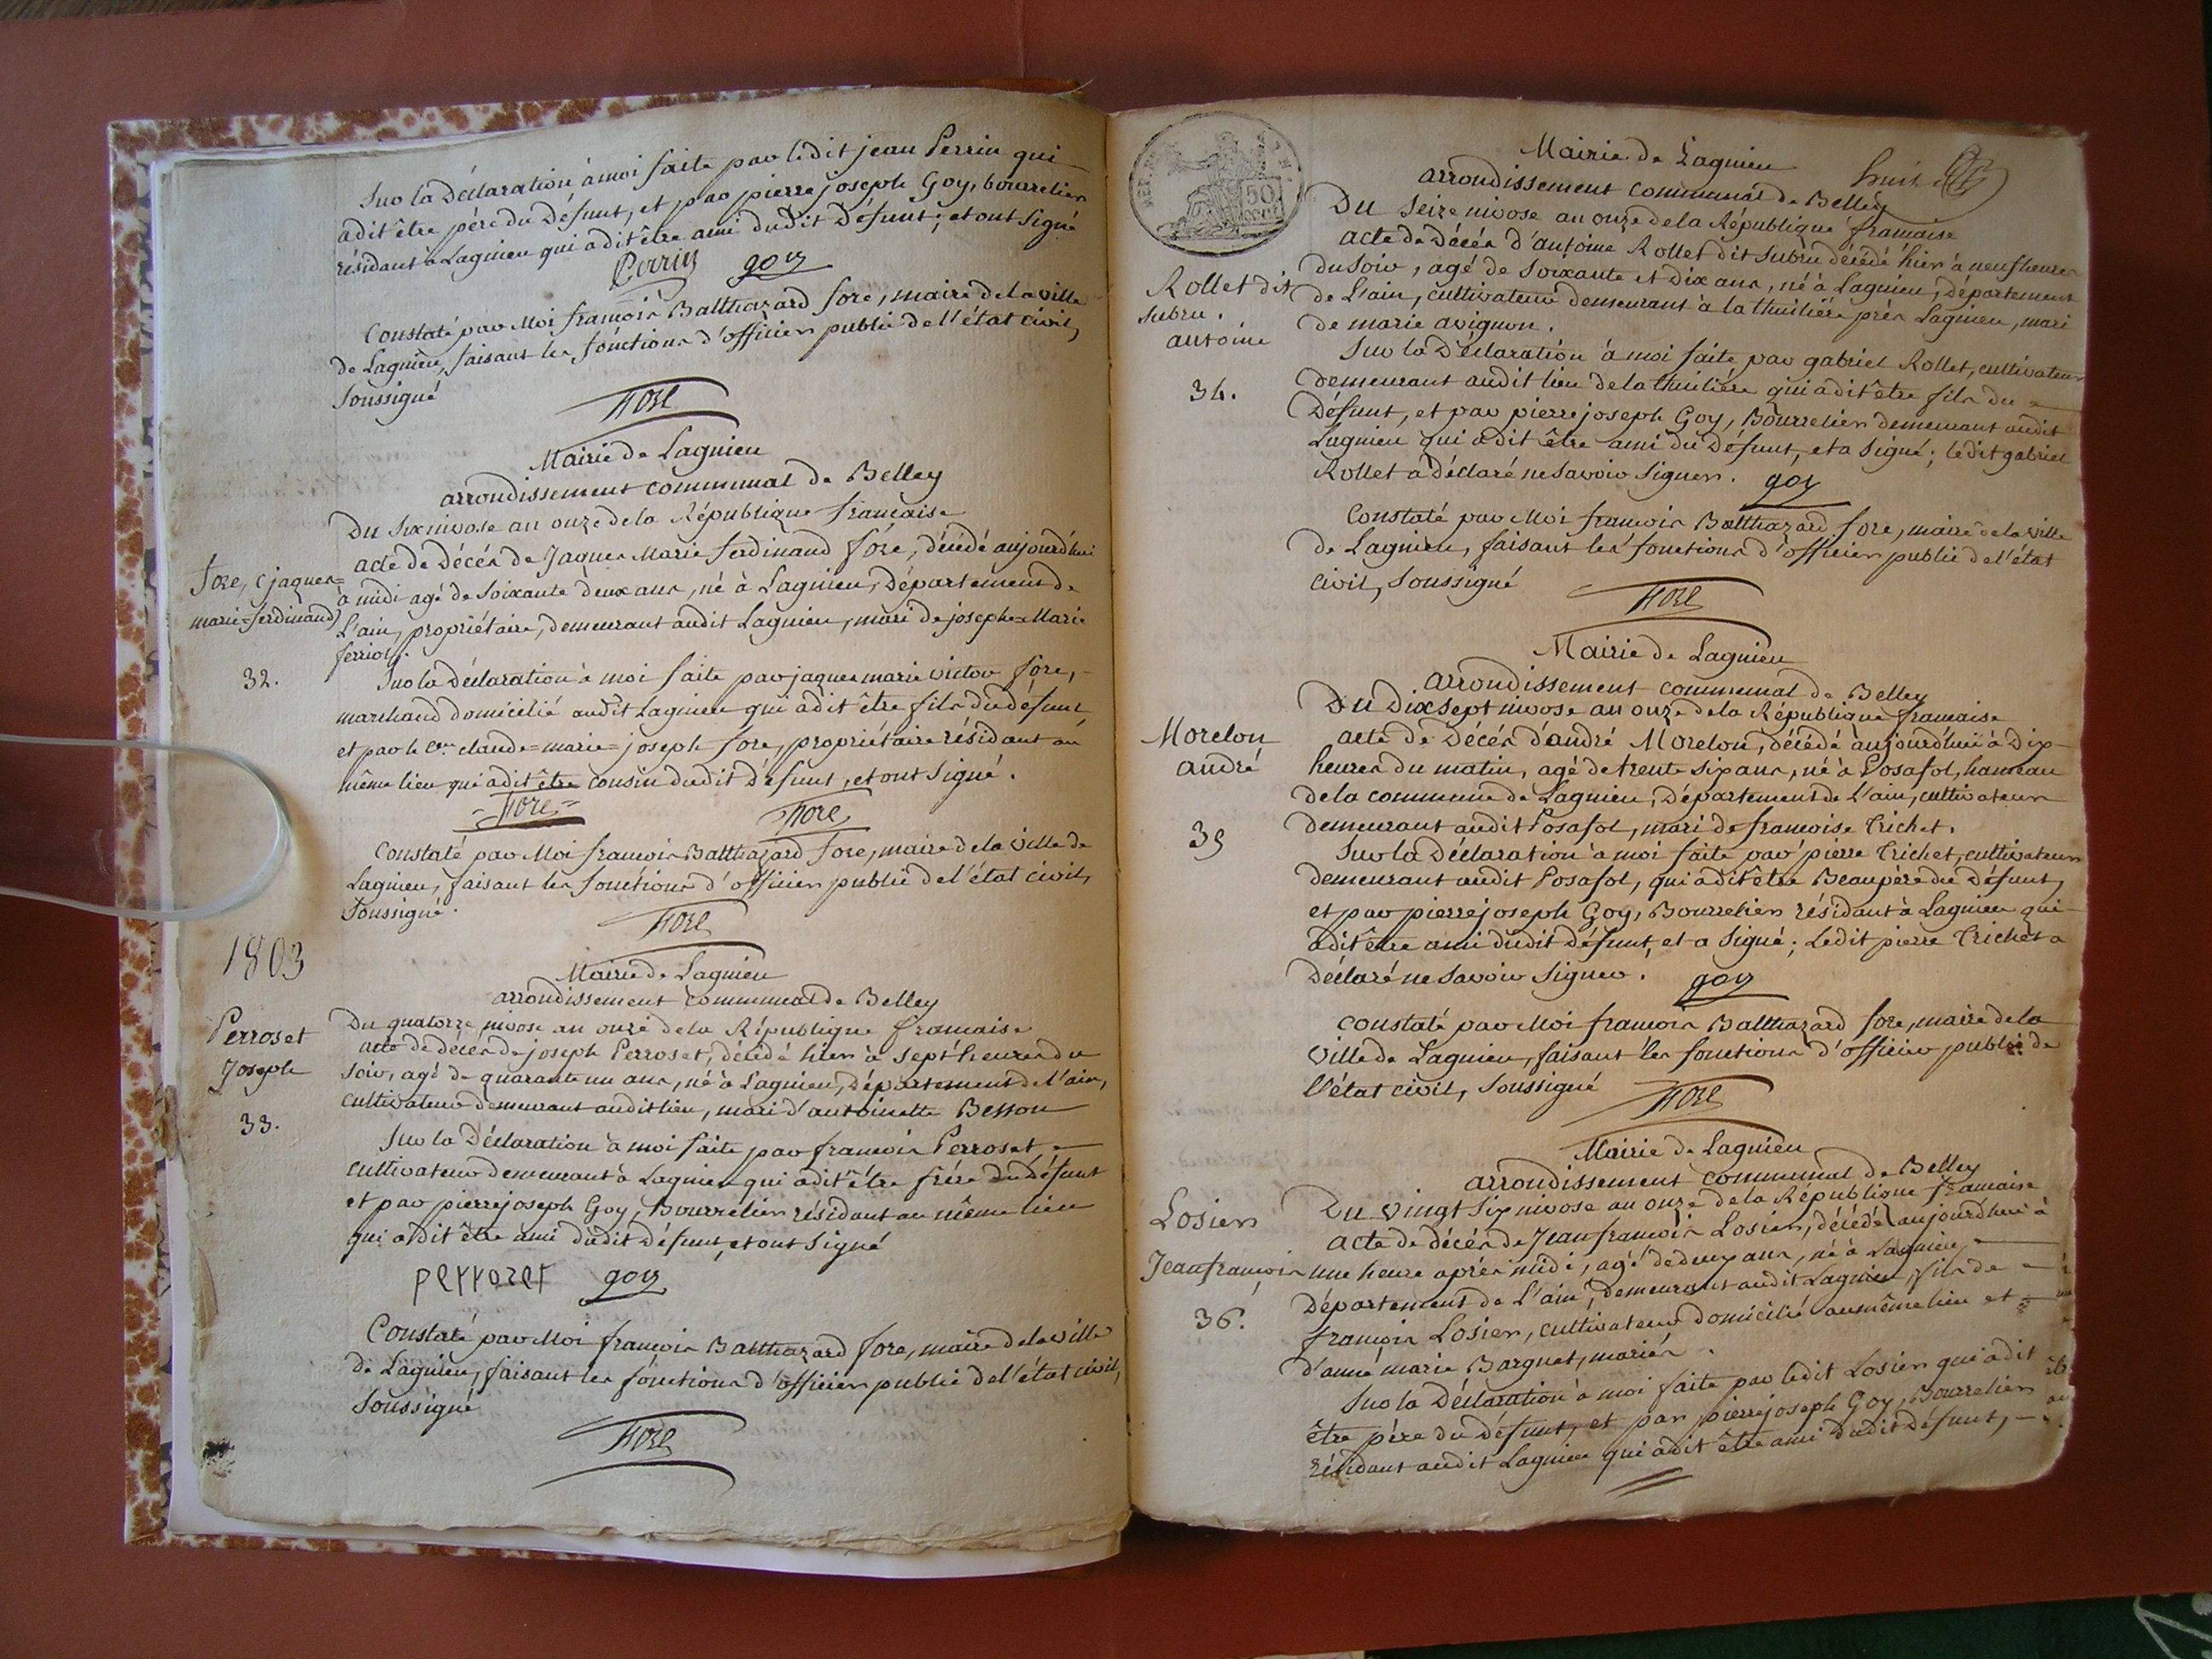 Sur la Déclaration à moi faite par ledit jean Perrin qui
a dit être père du Défunt, et par pierre joseph Goy, bourrelier
résidant à Lagnieu qui a dit être ami dudit Défunt; et ont signé
Perrin goy
Constaté par Moi françois Balthazard fore, maire de la ville
de Lagnieu, faisant les fonctions d'officier public de l'état civil,
Soussigné
FORE
Mairie de Lagnieu
arrondissement communal de Belley
Du six nivose an onze de la République française
acte de Décès de Jaques Marie ferdinand fore, décédé aujourd'hui
à midi agé de soixante deux ans, né à Lagnieu, Département de
L'ain, propriétaire, demeurant audit Lagnieu, mari de josephe=Marie
ferriot.
fore, jaques=
marie=ferdinand
32.
Sur la Déclaration à moi faite par jaques marie victor fore,
marchand domicilié audit Lagnieu qui a dit être fils du défunt
et par le cen claude=marie=joseph fore, propriétaire résidant au
même lieu qui a dit être cousin dudit défunt, et ont signé.
=fore= fore
Constaté par Moi françois Balthazard fore, maire de la ville de
Lagnieu, faisant les fonctions d'officier public de l'état civil,
soussigné.
FORE
1803
Mairie de Lagnieu
arrondissement communal de Belley
Du quatorze nivose an onze de la République française
acte de décès de joseph Perroset, décédé hier à sept heures du
soir, agé de quarante un ans, né à Lagnieu, Département de l'ain,
cultivateur demeurant audit lieu, mari d'antoinette Besson
Perroset
Joseph
33.
Sur la Déclaration à moi faite par françois Perroset
cultivateur demeurant à Lagnieu qui a dit être frère du défunt
et par pierre joseph Goy, Bourrelier résidant au même lieu
qui a dit être ami dudit défunt, et ont signé
perroset goy
Constaté par Moi françois Balthazard fore, maire de la ville
de Lagnieu, faisant les fonctions d'officier public de l'état civil,
Soussigné
FORE
50 cent
huit
Mairie de Lagnieu
arrondissement communal de Belley
Du seize nivose an onze de la République française
acte de Décès d'antoine Rollet dit subru décédé hier à neuf heures
du soir, agé de soixante et dix ans, né à Lagnieu, département
de L'ain, cultivateur demeurant à la thuilière près Lagnieu, mari
de marie avignon.
Rollet dit
subru.
antoine
34.
Sur la Déclaration à moi faite par gabriel Rollet, cultivateur
demeurant audit lieu de la thuilière qui a dit être fils du
Défunt, et par pierre joseph Goy, Bourrelier demeurant audit
Lagnieu qui a dit être ami du Défunt, et a signé; ledit gabriel
Rollet a déclaré ne savoir signer. goy
Constaté par Moi françois Balthazard fore, maire de la ville
de Lagnieu, faisant les fonctions d'officier public de l'état
civil, Soussigné
FORE
Mairie de Lagnieu
arrondissement communal de Belley
Du Dix sept nivose an onze de la République française
acte de Décès d'andré Morelon, décédé aujourd'hui à Dix
heures du matin, agé de trente six ans, né à Posafol, hameau
de la commune de Lagnieu, Département de L'ain, cultivateur
demeurant audit Posafol, mari de françoise Trichet.
Morelon
andré
35
Sur la Déclaration à moi faite par pierre Trichet, cultivateur
demeurant audit Posafol, qui a dit être Beaupère du Défunt,
et par pierre joseph Goy, Bourrelier résidant à Lagnieu qui
a dit être ami dudit défunt, et a signé; Ledit pierre Trichet a
Déclaré ne savoir signer. goy
Constaté par Moi françois Balthazard fore, maire de la
ville de Lagnieu, faisant les fonctions d'officier public de
l'état civil, Soussigné
FORE
Mairie de Lagnieu
arrondissement communal de Belley
Du vingt six nivose an onze de la République française
acte de décès de Jean françois Losier, décédé aujourd'hui à
une heure après midi, agé de deux ans, né à Lagnieu,
Département de L'ain, demeurant audit Lagnieu, fils de
françois Losier, cultivateur domicilié au même lieu et
d'anne marie Barguet, mariés.
Losier
Jean françois
36.
Sur la Déclaration à moi faite par ledit Losier qui a dit
être père du Défunt, et par pierre joseph Goy, Bourrelier
résidant audit Lagnieu qui a dit être ami dudit Défunt,